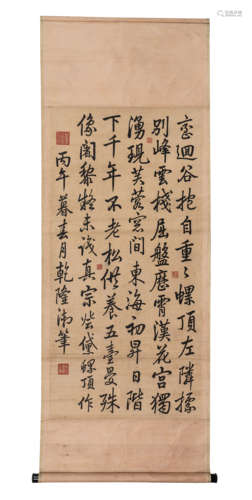 巒迴谷抱自重〻螺頂左隣據
別峰雲棧屈盤歷霄漢花宮獨
湧現芙蓉窓間東海初昇日階
下千年不老松供養五臺曼殊
像闍黎疑未識真宗黛螺頂作
丙午暮春月乾隆御筆